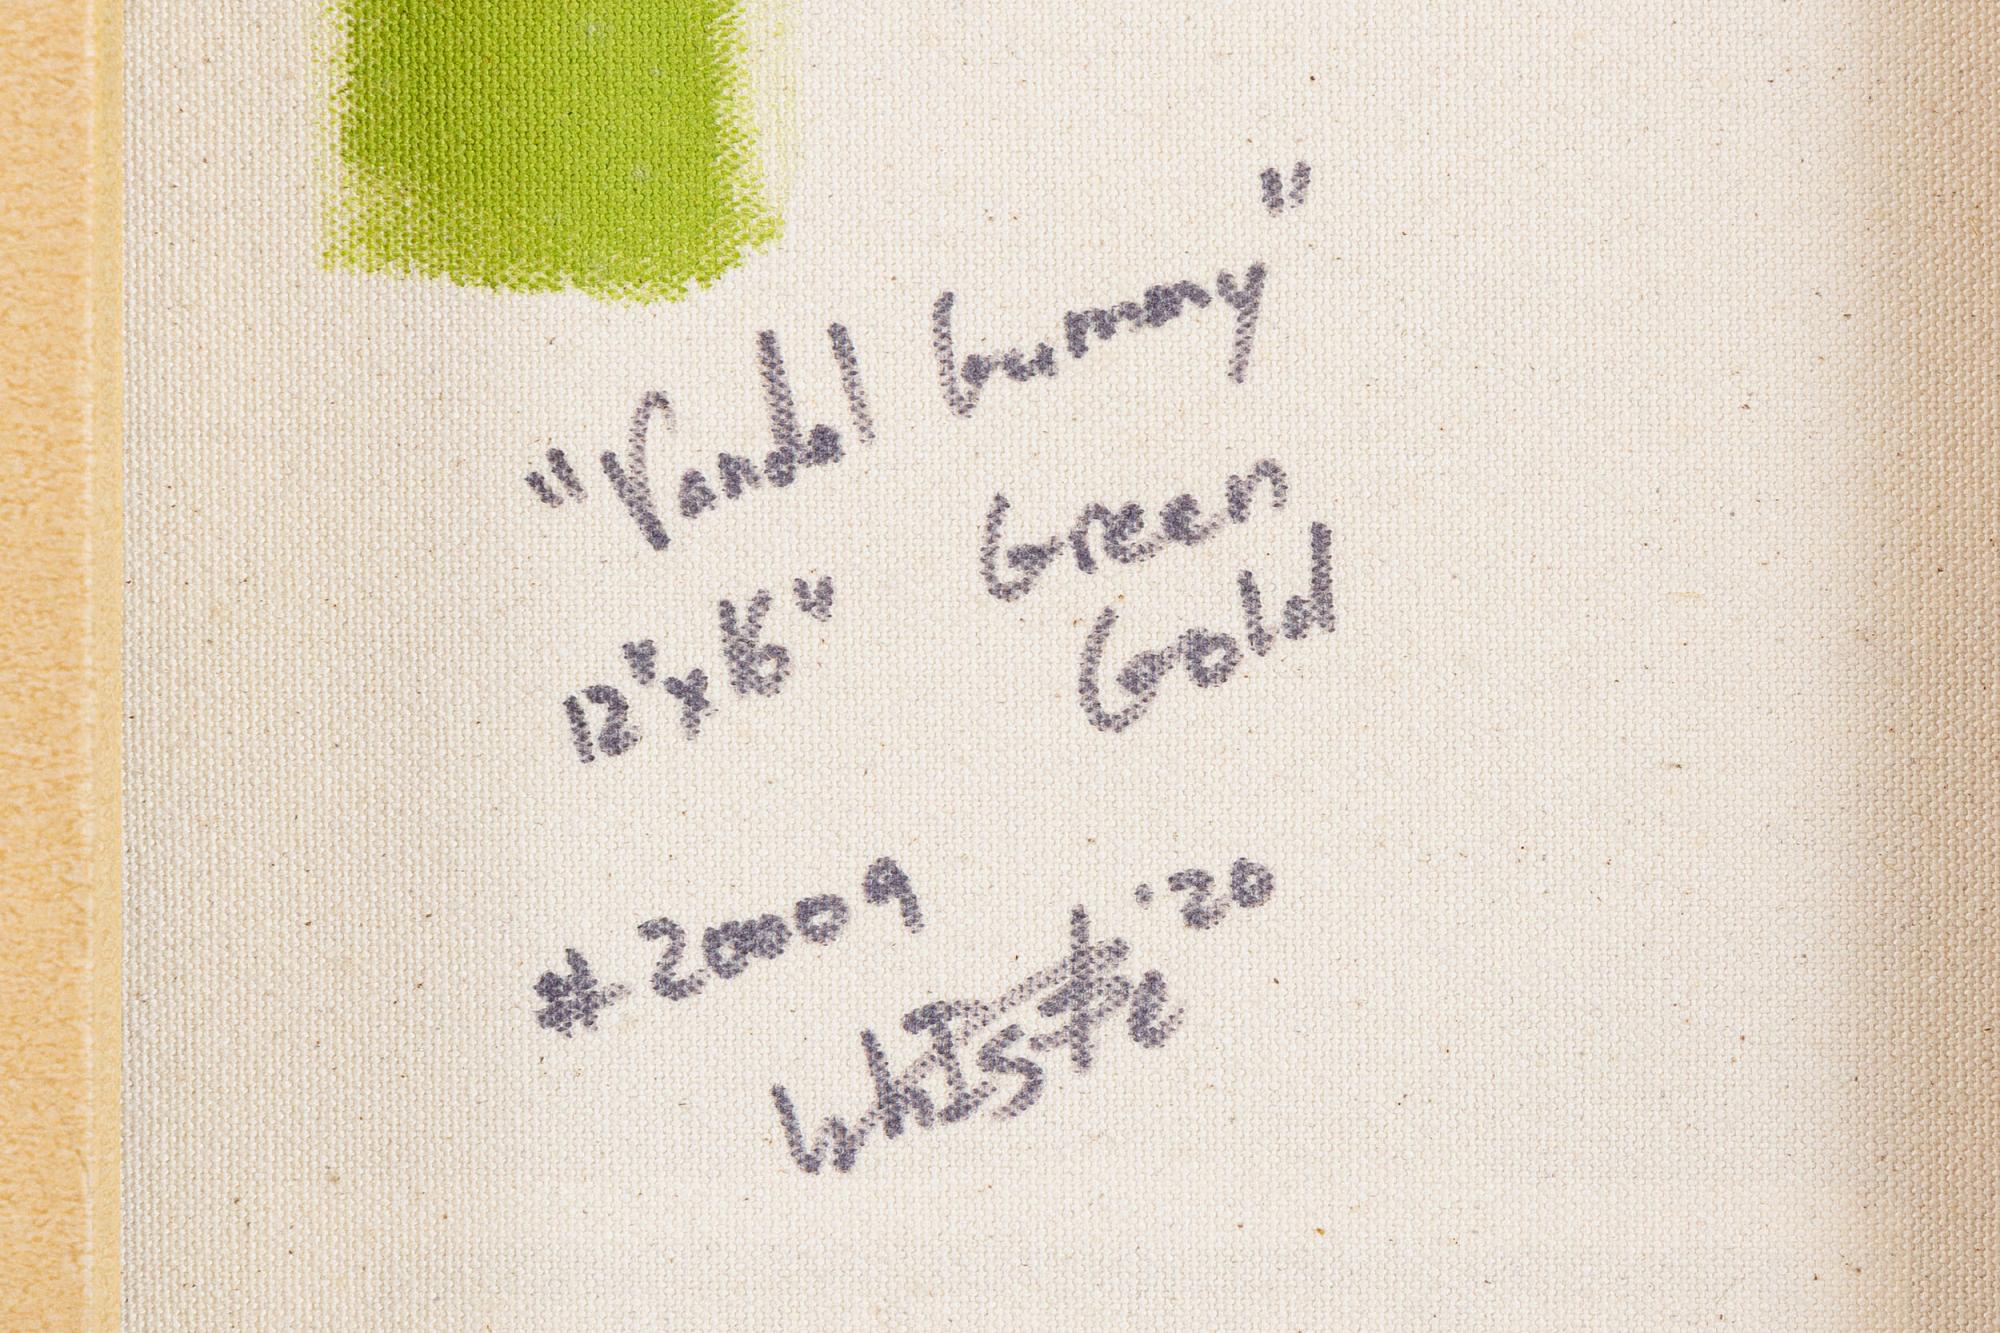 "Vandal Gummy"
12"x16" Green
Gold
#20009
WhIsBe '20